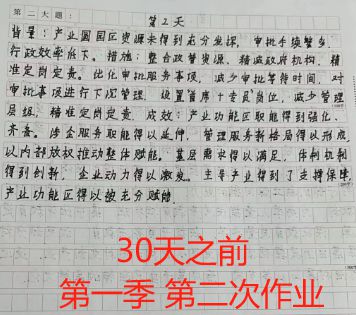 第二大题：
第2天
背景：产业园园区资源未得到充分发挥，审批手续繁多，
行政效率低下。措施：整合政管资源，精减政府机构，精
准定岗定责。优化审批服务事项，减少审批等待时间，对
审批事项进行下沉管理，设置首席+专员岗位，减少管理
层级，精准定岗定责。成效：产业功能区职能得到强化，
齐备。涉企服务职能得以延伸，管理服务新格局得以形成
以内部放权推动整体赋能。基层需求得以满足，体制机制
得到创新，企业动力得以激发。主导产业得到了支撑保障，
产业功能区得以被充分赋能
30天之前
第一季 第二次作业